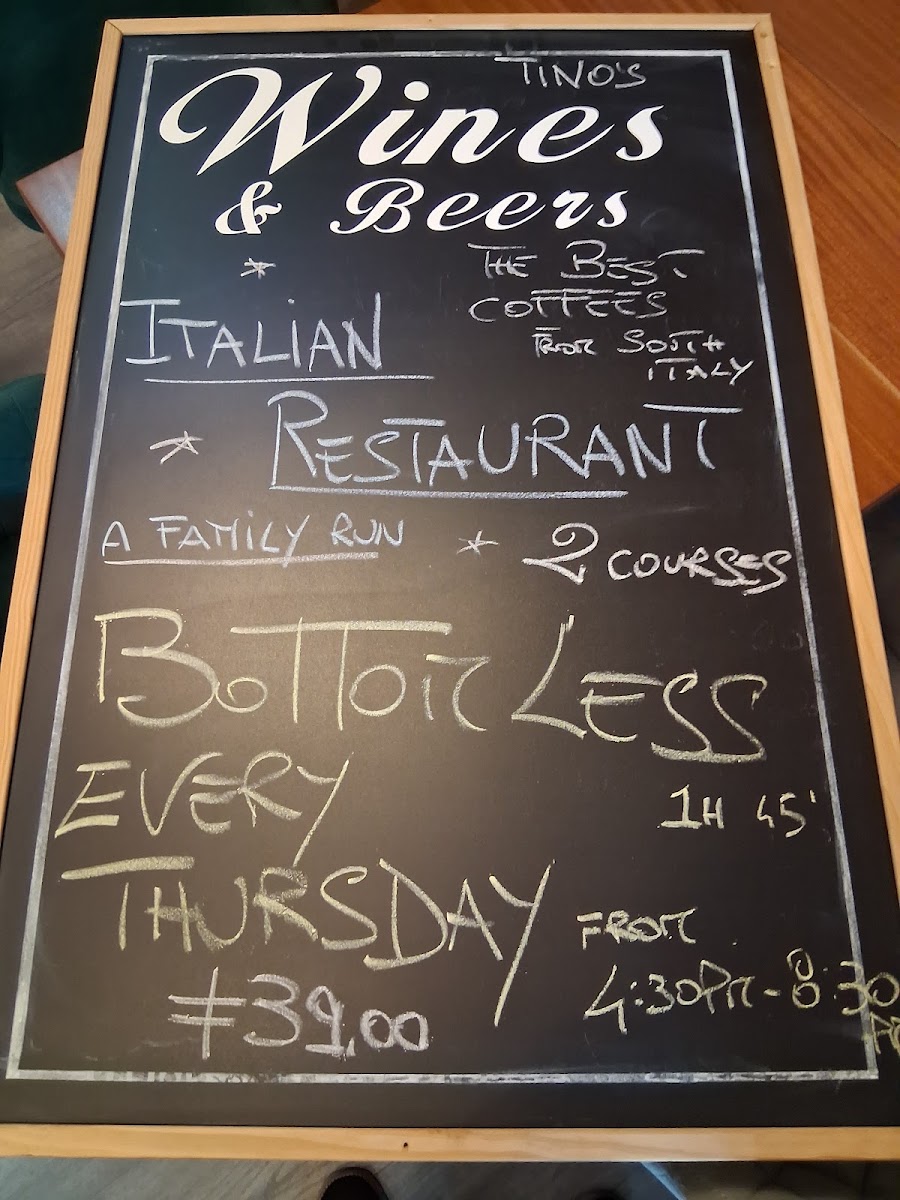 TINO'S
Wines
& Beers
* THE BEST
COFFEES
FROM SOUTH
ITALY
ITALIAN
* RESTAURANT
A FAMILY RUN * 2 COURSES
BOTTOMLESS
EVERY
1H 45'
THURSDAY
FROM
4:30PM-8:30
£39.00